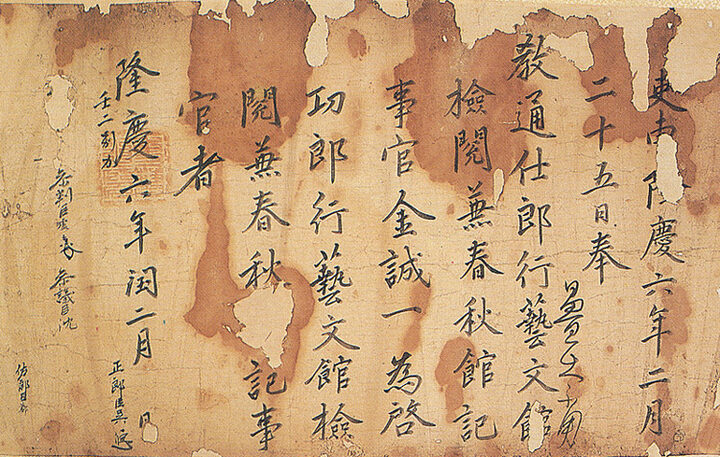 吏曹隆慶六年二月
二十五日奉
教通仕郎行藝文館
檢閱兼春秋館記
事官金誠一為啓
功郎行藝文館檢
閱兼春秋 記事
官者
隆慶六年閏二月 日
壬二別
參判臣 參議臣沈
正郎臣吳
佐郎臣